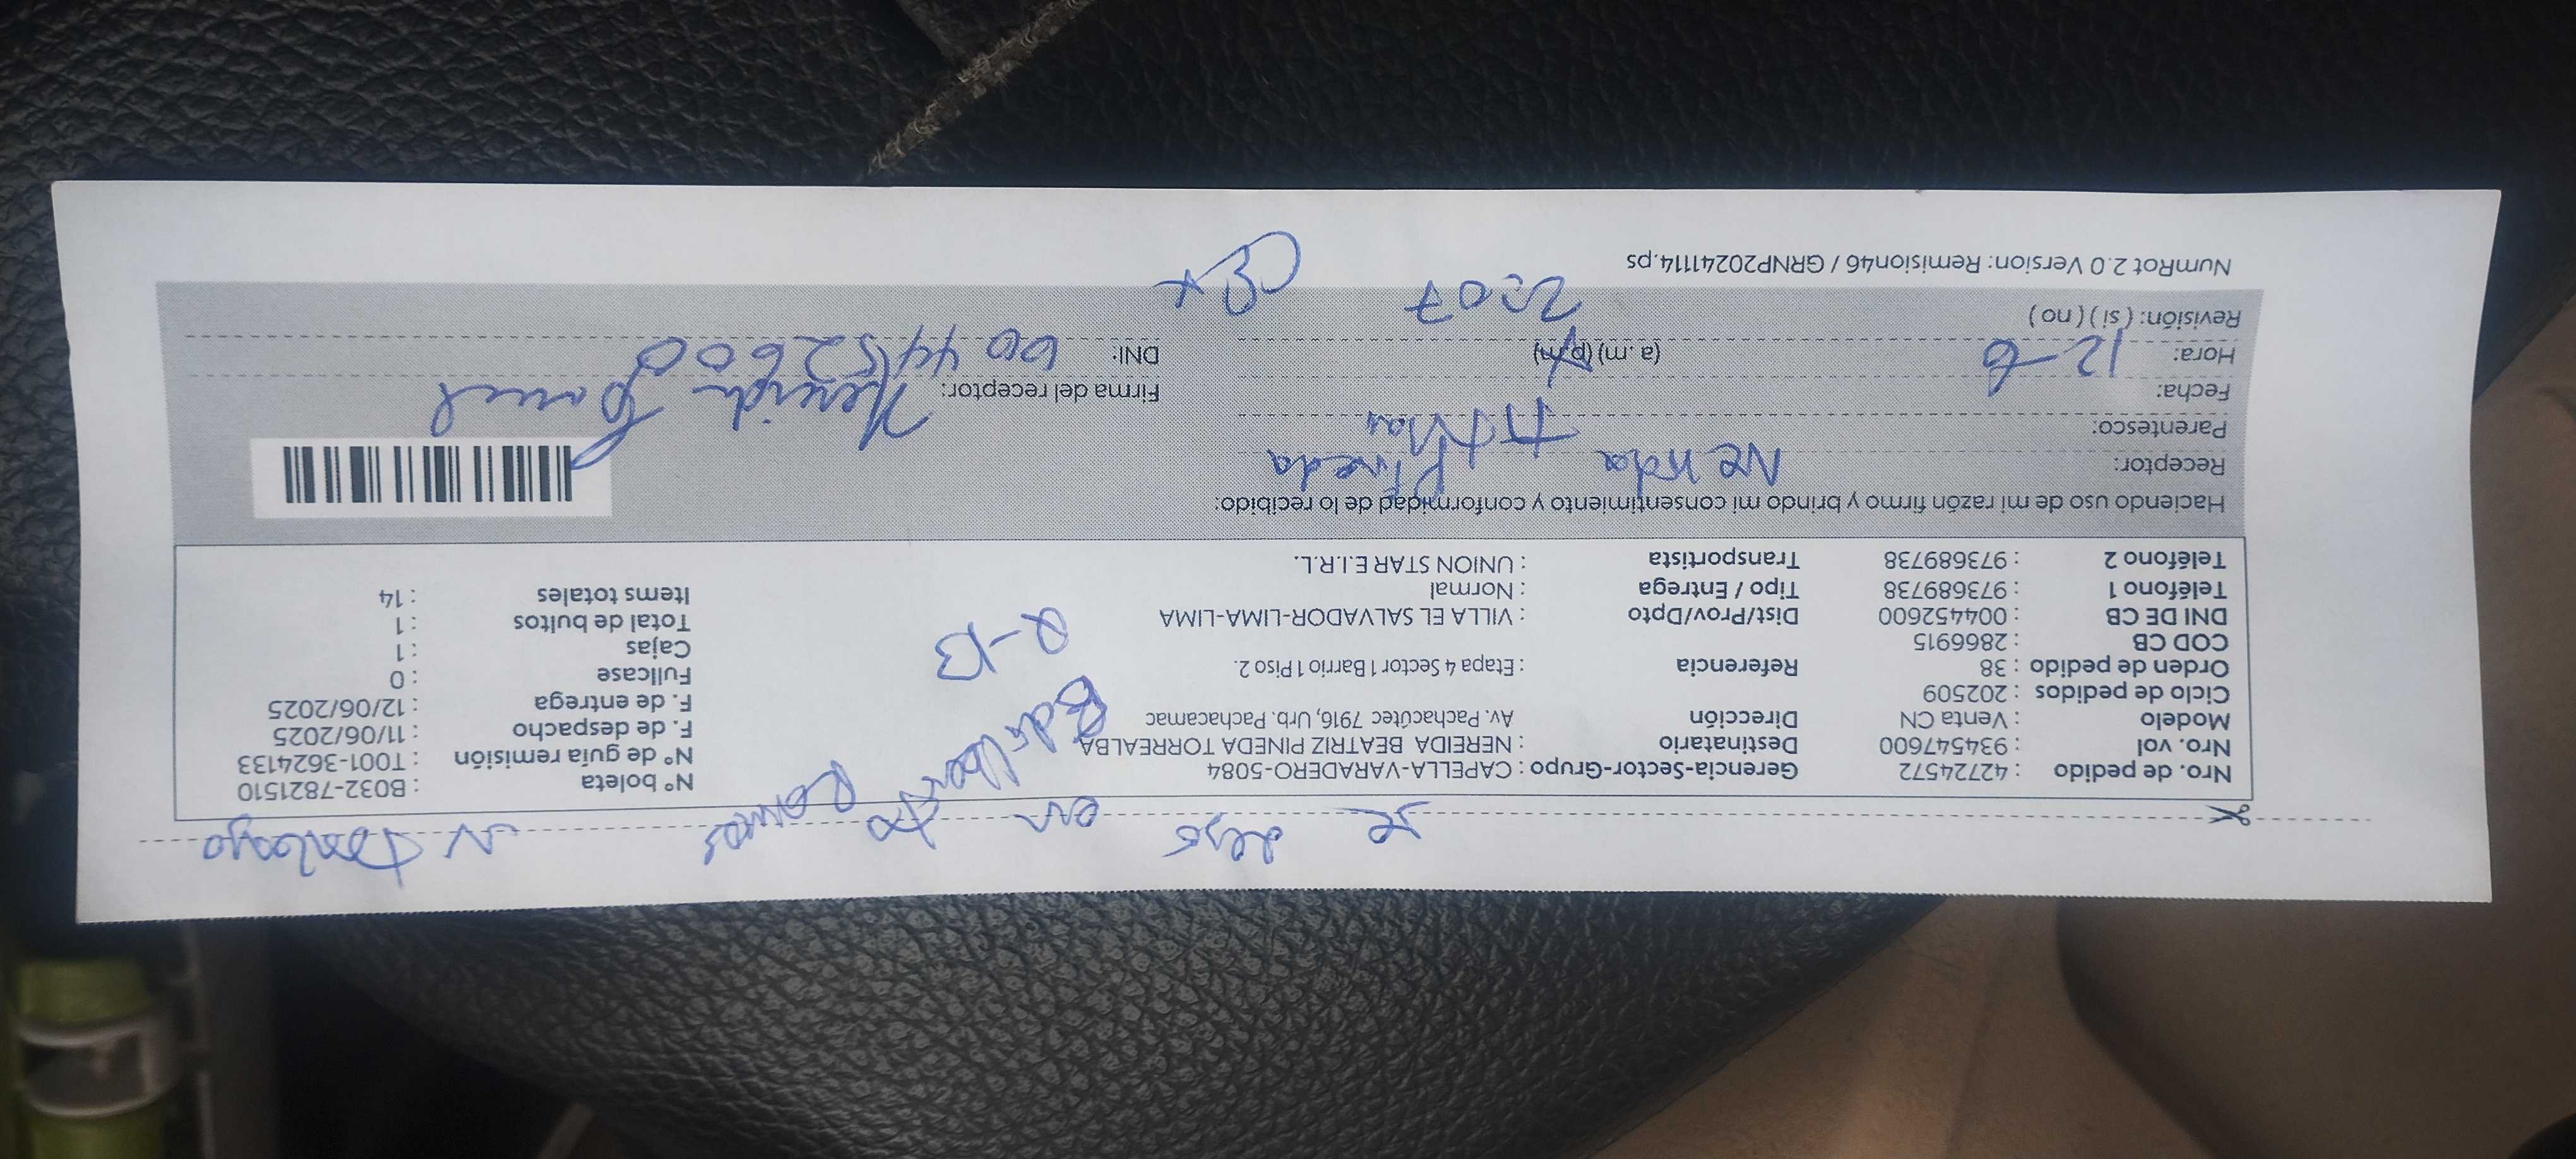 se dejo en
Nº boleta : B032-7821510
Nº de guía remisión : T001-3624133
F. de despacho : 11/06/2025
F. de entrega : 12/06/2025
Fullcase : 0
Cajas : 1
Total de bultos : 1
Items totales : 14
Gerencia-Sector-Grupo : CAPELLA-VARADERO-5084
Destinatario : NEREIDA BEATRIZ PINEDA TORREALBA
Dirección Av. Pachacútec 7916, Urb. Pachacamac
Referencia : Etapa 4 Sector 1 Barri 1 Brrio 1 Piso 2.
Dist/Prov/Dpto : VILLA EL SALVADOR-LIMA-LIMA
Tipo / Entrega : Normal
Transportista : UNION STAR E.I.R.L.
Nro. de pedido : 42724572
Nro. vol : 934547600
Modelo : Venta CN
Ciclo de pedidos : 202509
Orden de pedido : 38
COD CB : 2866915
DNI DE CB : 004452600
Teléfono 1 : 973689738
Teléfono 2 : 973689738
Haciendo uso de mi razón firmo y brindo mi consentimiento y conformidad de lo recibido:
Receptor: Pineda
Parentesco: Titular
Fecha: 12-6
Hora: (a.m) (p.m) 2:07
Revisión: ( si ) ( no )
Firma del receptor:
DNI: 004452600
NumRot 2.0 Version: Remision46 / GRNP20241114.ps